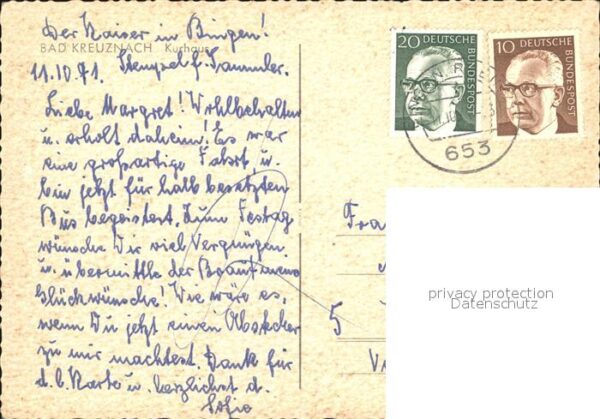 Der Kaiser in Bingen!
BAD KREUZNACH Kurhaus
11.10.71. Stempel f. Sammler.
Liebe Margret! Wohlbehalten
u. erholt daheim! Es war
eine großartige Fahrt, u.
bin jetzt für halb besetzten
Bus begeistert. Zum Festag
wünsche Dir viel Vergnügen
u. übermittle der Braut meine
Glückwünsche! Wie wäre es,
wenn Du jetzt einen Abstecher
zu mir machtest. Dank für
d. l. Karte u. herzlichst d.
20 DEUTSCHE BUNDESPOST
10 DEUTSCHE BUNDESPOST
653
Fra
5
privacy protection
Datenschutz